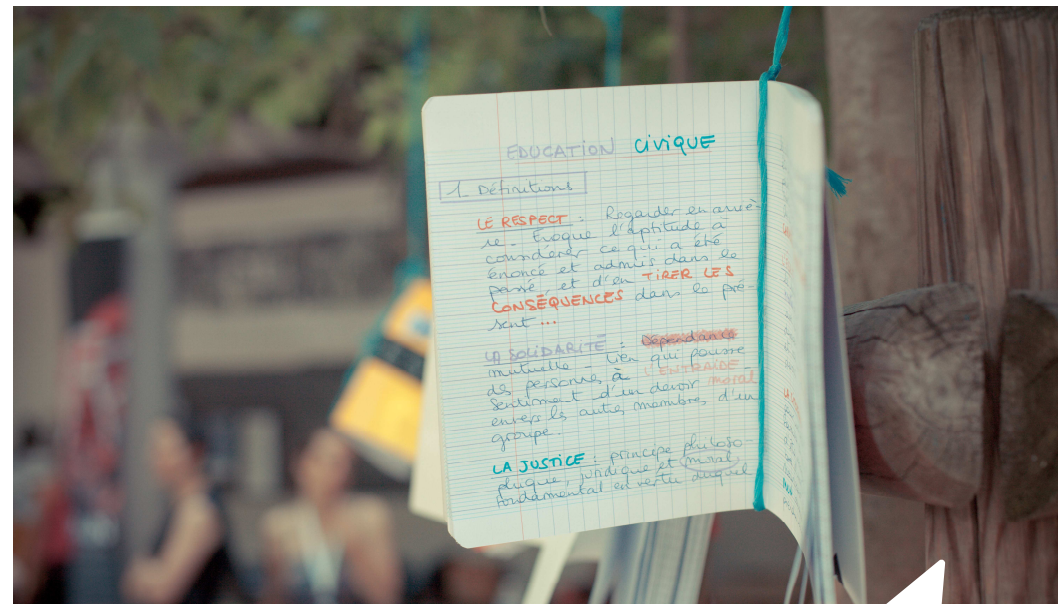 EDUCATION CIVIQUE
1_ Définitions
LE RESPECT : Regarder en arriè-
re. Evoque l'aptitude à
considérer ce qui a été
énoncé et admis dans le
passé, et d'en TIRER LES
CONSÉQUENCES dans le pré-
sent ...
LA SOLIDARITÉ : Dépendance
mutuelle - lien qui pousse
des personnes à L'ENTRAIDE
Sentiment d'un devoir moral
envers les autres membres d'un
groupe.
LA JUSTICE : principe philoso-
phique, juridique et moral
fondamental en vertu duquel